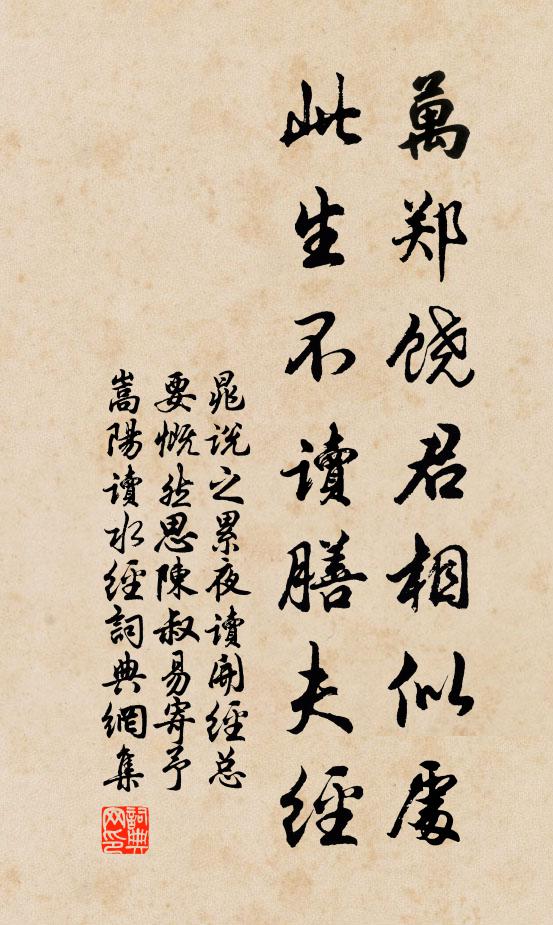 萬郑饶君相似處
此生不讀膳夫經
晁说之累夜讀開經总
要慨然思陳叔易寄予
嵩陽讀水經詞典網集
詞典
网印